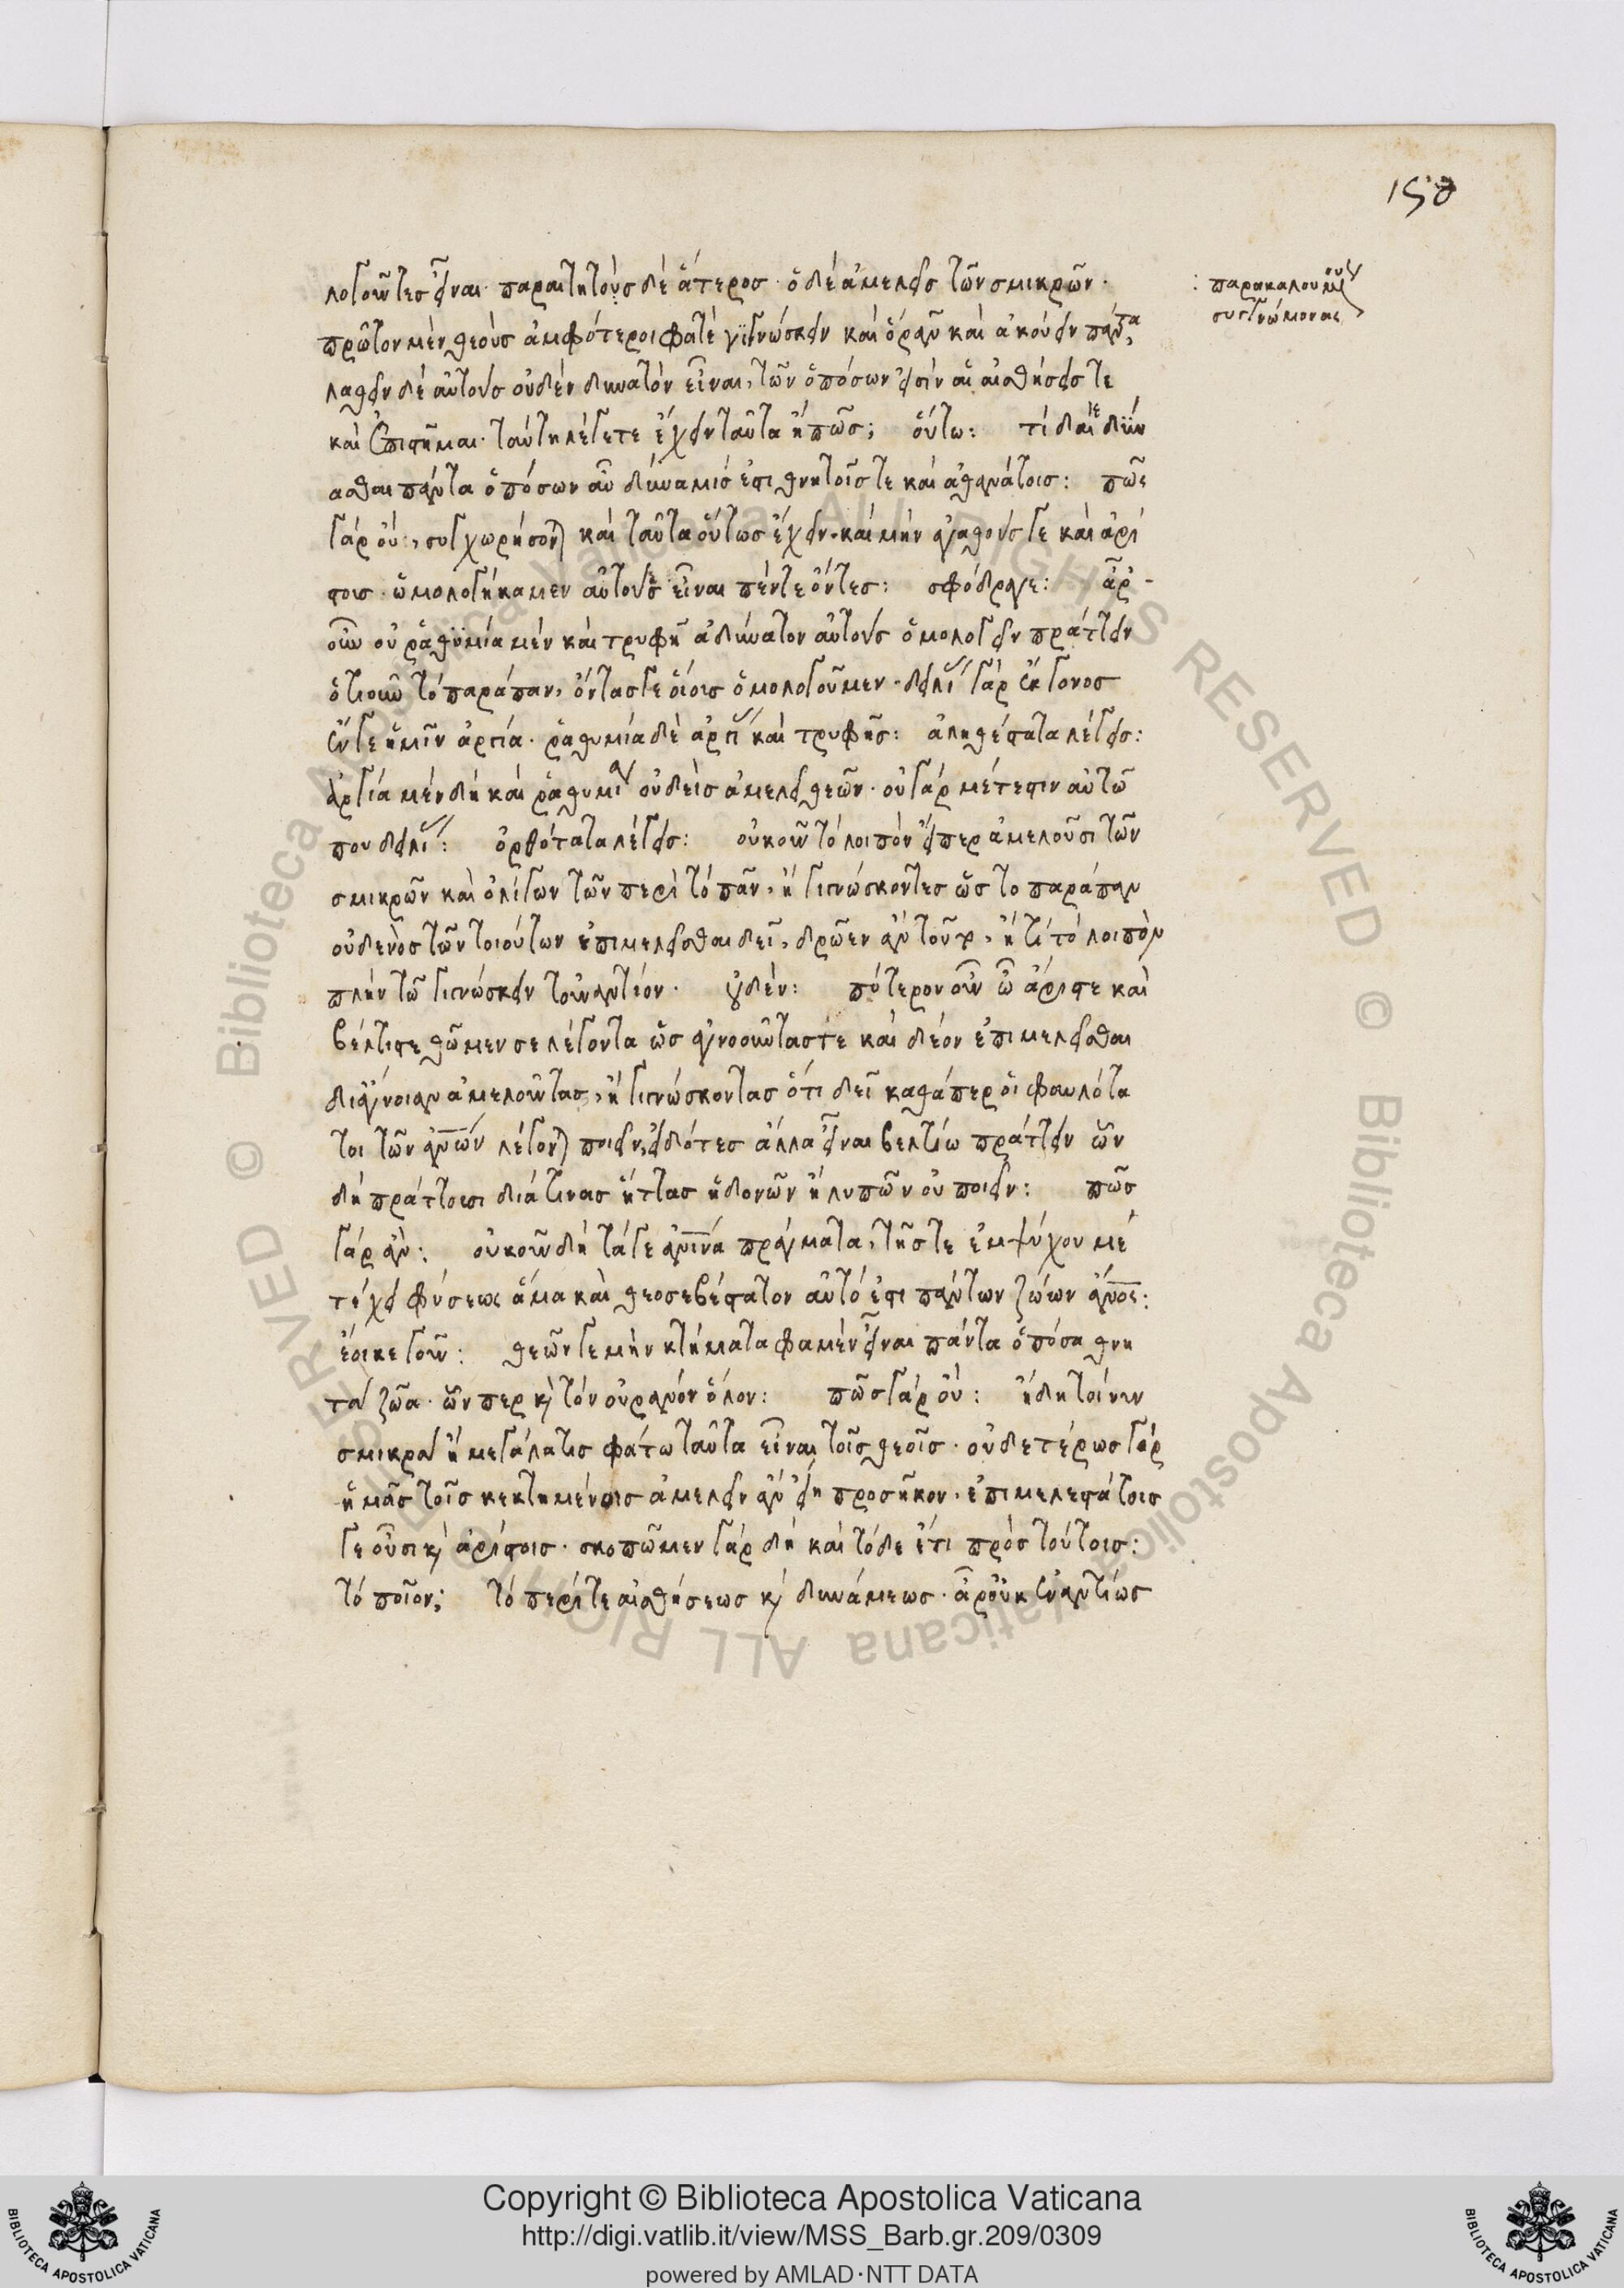 150
λογοῦντες εἶναι· παραιτητοὺς δὲ ἅτερος· ὁ δὲ ἀμελεῖς τῶν σμικρῶν·
: παρακαλουμένους
συγγνώμονας
πρῶτον μὲν θεοὺς ἀμφότεροι φατὲ γϊγνώσκειν καὶ ὁρᾶν καὶ ἀκούειν πάντα,
λαθεῖν δὲ αὐτοὺς οὐδὲν δυνατὸν εἶναι, τῶν ὁπόσων εἰσὶν αἱ αἰσθήσεις τε
καὶ ἐπιστῆμαι· ταύτη λέγετε ἔχειν ταῦτα ἢ πῶς; οὕτω: τί δαὶ δύν
ασθαι πάντα ὁπόσων αὖ δύναμίς ἐστι θνητοῖς τε καὶ ἀθανάτοις: πῶς
γὰρ οὔ:, συγχωρήσονται καὶ ταῦτα οὕτως ἔχειν· καὶ μὴν ἀγαθούς γε καὶ ἀρί
στοις· ὡμολογήκαμεν αὐτοὺς εἶναι πέντε ὄντες: σφόδρα γε: ἆρ᾽
οὖν οὐ ῥαθυμία μὲν καὶ τρυφῆ ἀδύνατον αὐτοὺς ὁμολογεῖν πράττειν
ὁτιοῦν τὸ παράπαν, ὄντας γε οἵοις ὁμολογοῦμεν· δειλίας γὰρ ἔκγονος
ἔν γε ἡμῖν ἀργία· ῥαθυμία δὲ ἀργίας καὶ τρυφῆς: ἀληθέστατα λέγεις:
ἀργία μὲν δὴ καὶ ῥαθυμία οὐδεὶς ἀμελεῖ θεῶν· οὐ γὰρ μέτεστιν αὐτῶ
που δειλίας: ὀρθότατα λέγεις: οὐκοῦν τὸ λοιπὸν εἴπερ ἀμελοῦσι τῶν
σμικρῶν καὶ ὀλίγων τῶν περὶ τὸ πᾶν, ἢ γιγνώσκοντες ὡς το παράπαν
οὐδενὸς τῶν τοιούτων ἐπιμελεῖσθαι δεῖ, δρῶεν ἂν τοῦτο, ἢ τί τὸ λοιπὸν
πλὴν τῶ γιγνώσκειν τοὐναντίον· οὐδέν: πότερον οὖν ὦ ἄριστε καὶ
βέλτιστε θῶμεν σε λέγοντα ὡς ἀγνοοῦντάς τε καὶ δέον ἐπιμελεῖσθαι
δι᾽ ἄγνοιαν ἀμελοῦντας, ἢ γιγνώσκοντας ὅτι δεῖ καθάπερ οἱ φαυλότα
τοι τῶν ἀνων λέγονται ποιεῖν, εἰδότες ἀλλα εἶναι βελτίω πράττειν ὧν
δὴ πράττουσι διά τινας ἥττας ἡδονῶν ἢ λυπῶν οὐ ποιεῖν: πῶς
γὰρ ἄν: οὐκοῦν δὴ τά γε ἀνινα πράγματα, τῆς τε ἐμψύχου με
τέχει φύσεως ἅμα καὶ θεοσεβέστατον αὐτό ἐστι πάντων ζώων ἄνος:
ἔοικε γοῦν: θεῶν γε μὴν κτήματα φαμὲν εἶναι πάντα ὁπόσα θνη
τὰ ζῶα· ὧνπερ καὶ τὸν οὐρανὸν ὅλον: πῶς γὰρ οὔ: ἤδη τοίνυν
σμικρὰ ἢ μεγάλα τις φάτω ταῦτα εἶναι τοῖς θεοῖς· οὐδετέρως γὰρ
ἡμᾶς τοῖς κεκτημένοις ἀμελεῖν ἂν εἴη προσῆκον· ἐπιμελεστάτοις
γε οὖσι καὶ ἀρίστοις· σκοπῶμεν γὰρ δὴ καὶ τόδε ἔτι πρὸς τούτοις:
τὸ ποῖον; τὸ περί τε αἰσθήσεως καὶ δυνάμεως· ἆρ᾽ οὐκ ἐναντίως
Copyright © Biblioteca Apostolica Vaticana
http://digi.vatlib.it/view/MSS_Barb.gr.209/0309
powered by AMLAD·NTT DATA
BIBLIOTECA APOSTOLICA VATICANA
BIBLIOTECA APOSTOLICA VATICANA
© Biblioteca Apostolica Vaticana ALL RIGHTS RESERVED © Biblioteca Apostolica Vaticana ALL RIGHTS RESERVED